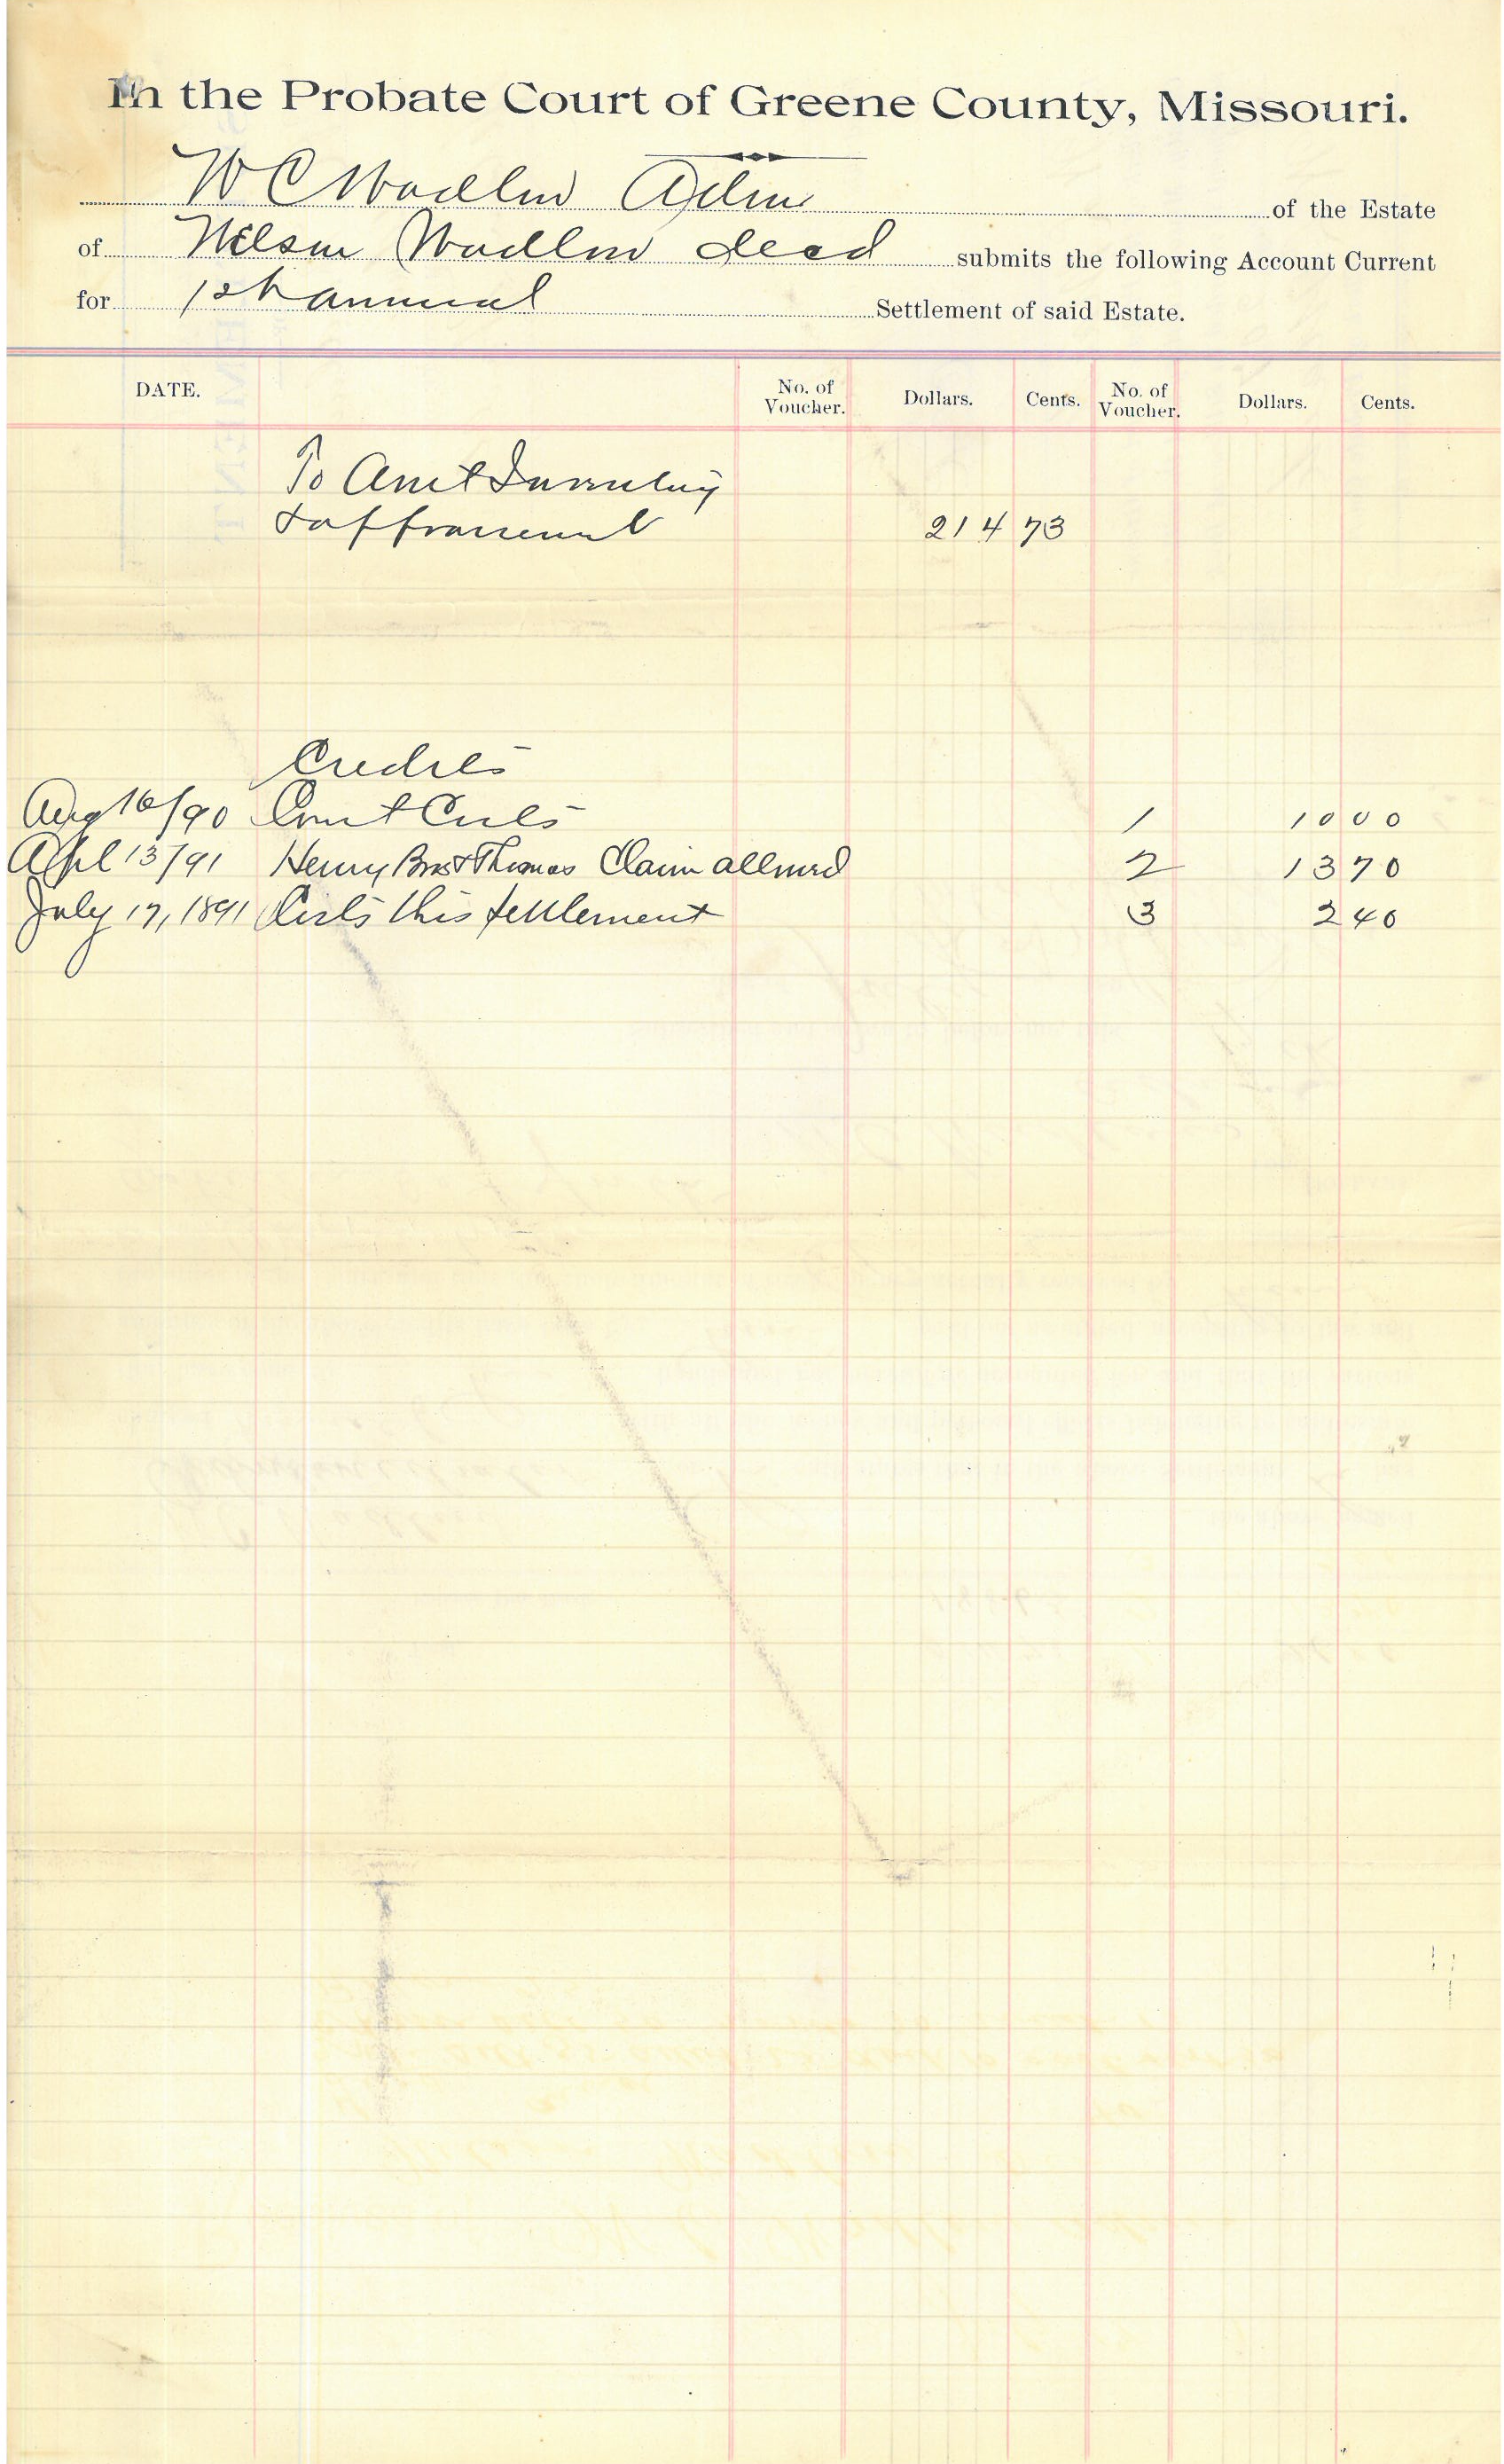 In the Probate Court of Greene County, Missouri.
W C Wadlow Adm of the Estate
of Wilson Wadlow decd submits the following Account Current
for 1st annual Settlement of said Estate.
DATE. No. of Voucher. Dollars. Cents. No. of Voucher. Dollars. Cents.
To Amt Inventory
& appraisement 214 73
Credits
Aug 16/90 Court Costs 1 10 00
Apl 13/91 Henry Bros & Thomas Claim allowed 2 13 70
July 17, 1891 Costs this settlement 3 2 40